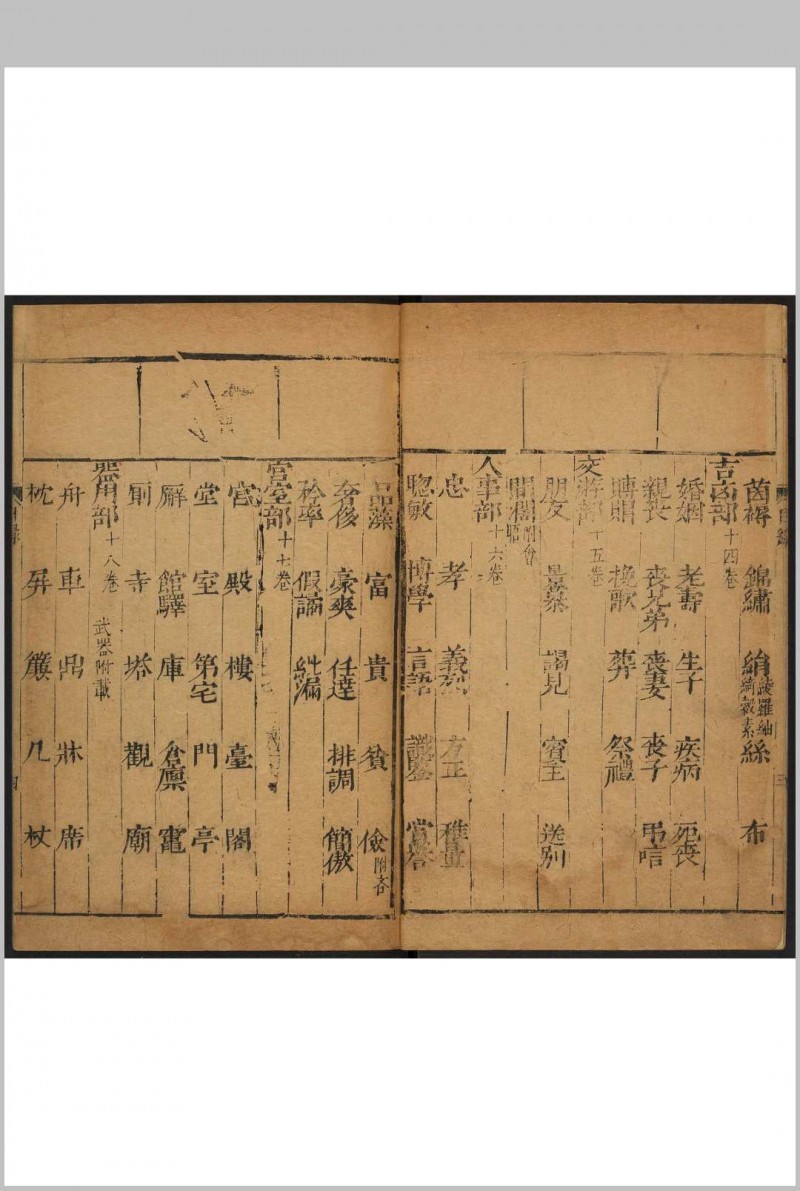 茵褥 錦繡 絹綾羅紬綺縠素 絲 布
吉凶部十四卷
婚姻 老壽 生子 疾病 死喪
親喪 喪兄弟 喪妻 喪子 弔唁
賻賵 挽歌 葬 祭禮
交游部十五卷
朋友 景慕 謁見 賓主 送別
間闊附會晤
人事部十六卷
忠 孝 義烈 方正 雅量
聰敏 博學 言語 識鑒 賞譽
品藻 富 貴 貧 儉附吝
奢侈 豪爽 任達 排調 簡傲
矜率 假譎 紕漏
宮室部十七卷
宮 殿 樓 臺 閣
堂 室 第宅 門 亭
廨 館驛 庫 倉廩 竈
廁 寺 塔 觀 廟
器用部十八卷 武器附載
舟 車 鼎 牀 席
枕 屏 簾 几 杖
目錄
三
目錄
四